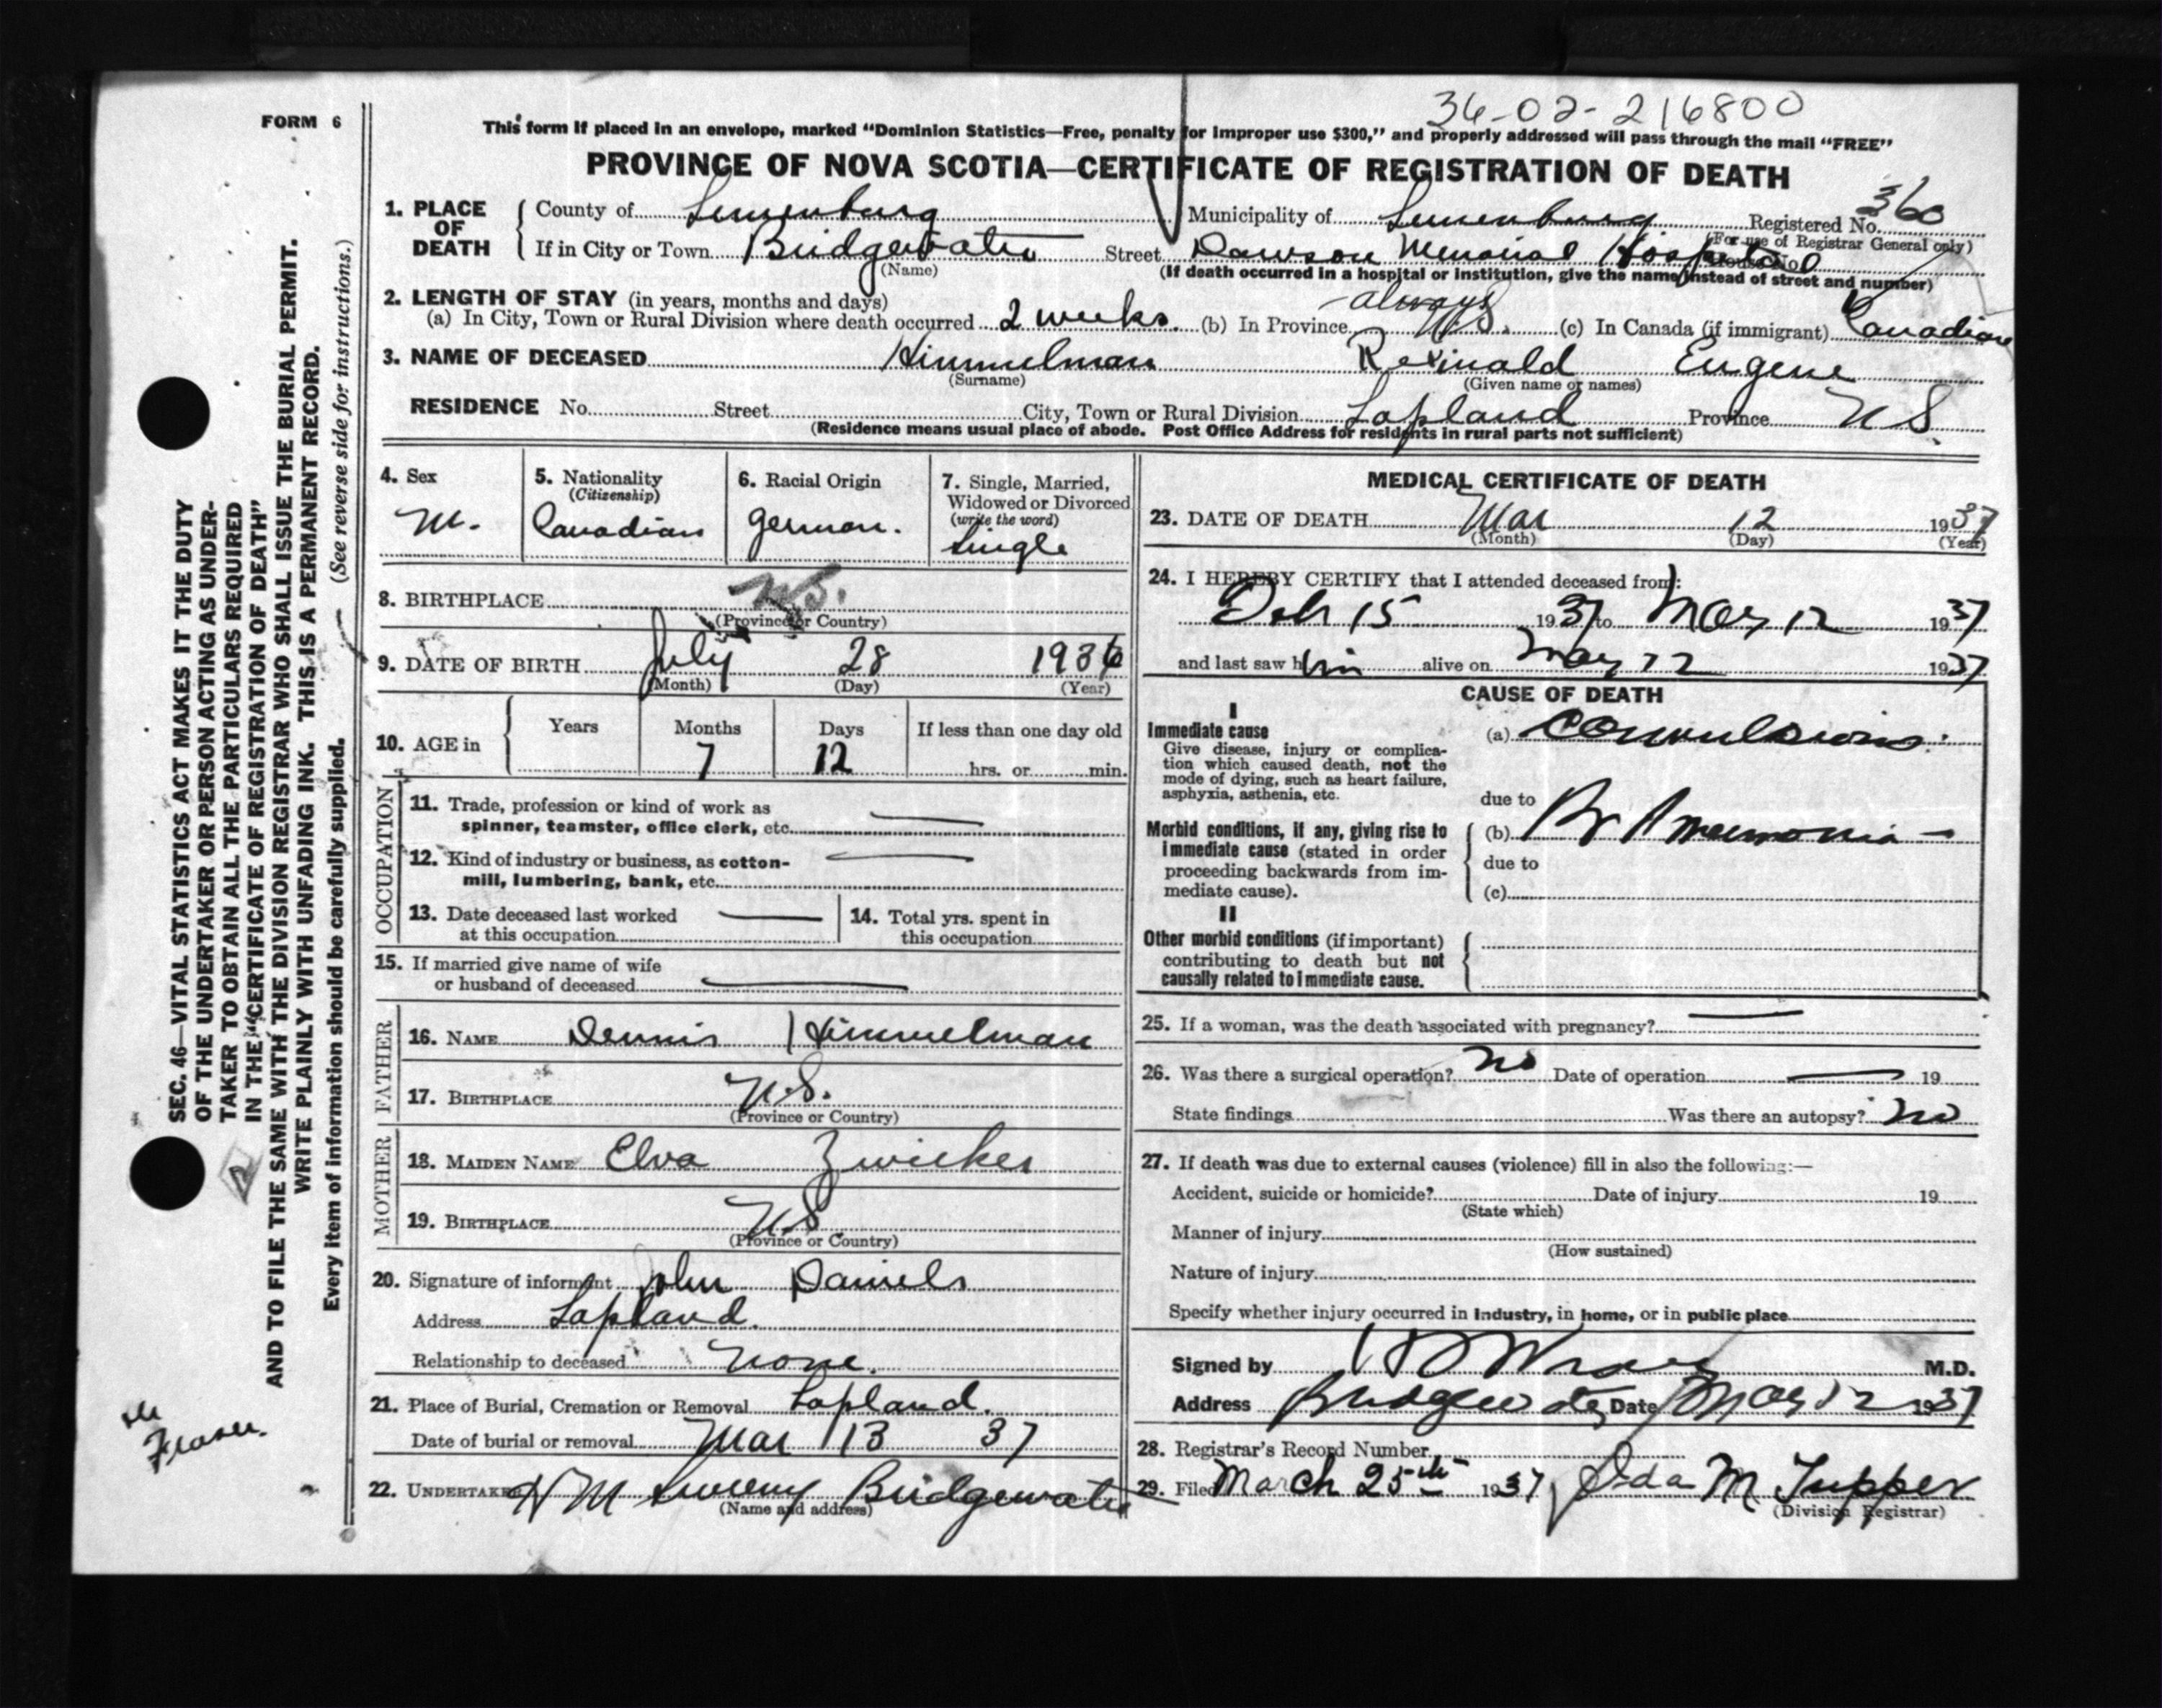 36-02-216800
FORM 6
This form if placed in an envelope, marked "Dominion Statistics—Free, penalty for improper use $300," and properly addressed will pass through the mail "FREE"
PROVINCE OF NOVA SCOTIA—CERTIFICATE OF REGISTRATION OF DEATH
1. PLACE OF DEATH County of Lunenburg Municipality of Lunenburg Registered No. 360
(For use of Registrar General only)
If in City or Town Bridgewater Street Dawson Memorial Hospital House No.
(Name) (If death occurred in a hospital or institution, give the name instead of street and number)
2. LENGTH OF STAY (in years, months and days)
(a) In City, Town or Rural Division where death occurred 2 weeks. (b) In Province always N.S. (c) In Canada (if immigrant) Canadian
3. NAME OF DECEASED Himmelman Reginald Eugene
(Surname) (Given name or names)
RESIDENCE No. Street City, Town or Rural Division Lapland Province N S.
(Residence means usual place of abode. Post Office Address for residents in rural parts not sufficient)
4. Sex M.
5. Nationality (Citizenship) Canadian
6. Racial Origin German.
7. Single, Married, Widowed or Divorced (write the word) Single
8. BIRTHPLACE N.S.
(Province or Country)
9. DATE OF BIRTH July 28 1936
(Month) (Day) (Year)
10. AGE in Years Months 7 Days 12 If less than one day old hrs. or min.
OCCUPATION
11. Trade, profession or kind of work as spinner, teamster, office clerk, etc. —
12. Kind of industry or business, as cotton-mill, lumbering, bank, etc. —
13. Date deceased last worked at this occupation —
14. Total yrs. spent in this occupation
15. If married give name of wife or husband of deceased —
FATHER
16. NAME Dennis Himmelman
17. BIRTHPLACE N.S.
(Province or Country)
MOTHER
18. MAIDEN NAME Elva Zwicker
19. BIRTHPLACE N S
(Province or Country)
20. Signature of informant John Daniels
Address Lapland.
Relationship to deceased none.
21. Place of Burial, Cremation or Removal Lapland.
Date of burial or removal Mar 13 37
22. UNDERTAKER H M Sweeny Bridgewater
(Name and address)
MEDICAL CERTIFICATE OF DEATH
23. DATE OF DEATH Mar 12 1937
(Month) (Day) (Year)
24. I HEREBY CERTIFY that I attended deceased from:
Feb 15 1937 to Mar 12 1937
and last saw him alive on Mar 12 1937
CAUSE OF DEATH
I
Immediate cause
Give disease, injury or complication which caused death, not the mode of dying, such as heart failure, asphyxia, asthenia, etc.
(a) Convulsions.
due to
Morbid conditions, if any, giving rise to immediate cause (stated in order proceeding backwards from immediate cause).
(b) Br Pneumonia —
due to
(c)
II
Other morbid conditions (if important) contributing to death but not causally related to immediate cause.
25. If a woman, was the death associated with pregnancy? —
26. Was there a surgical operation? No Date of operation — 19
State findings Was there an autopsy? No
27. If death was due to external causes (violence) fill in also the following:—
Accident, suicide or homicide? Date of injury 19
(State which)
Manner of injury
(How sustained)
Nature of injury
Specify whether injury occurred in industry, in home, or in public place
Signed by M.D.
Address Bridgewater Date Mar 12 1937
28. Registrar's Record Number
29. Filed March 25th 1937 Ida M Tupper
(Division Registrar)
SEC. 46—VITAL STATISTICS ACT MAKES IT THE DUTY
OF THE UNDERTAKER OR PERSON ACTING AS UNDER-
TAKER TO OBTAIN ALL THE PARTICULARS REQUIRED
IN THE "CERTIFICATE OF REGISTRATION OF DEATH"
AND TO FILE THE SAME WITH THE DIVISION REGISTRAR WHO SHALL ISSUE THE BURIAL PERMIT.
WRITE PLAINLY WITH UNFADING INK. THIS IS A PERMANENT RECORD.
Every item of information should be carefully supplied. (See reverse side for instructions.)